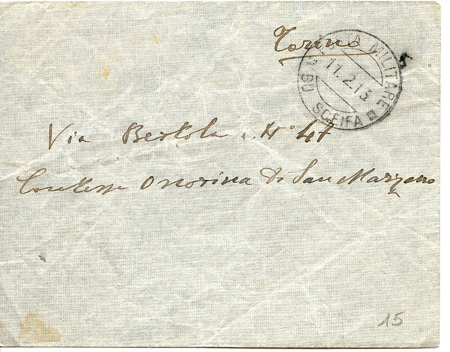 Torino
POSTA MILITARE
11.2.13
BU SCEIFA
5
Via Bertola . N° 47
Contessa Onorina Di San Marzano
15